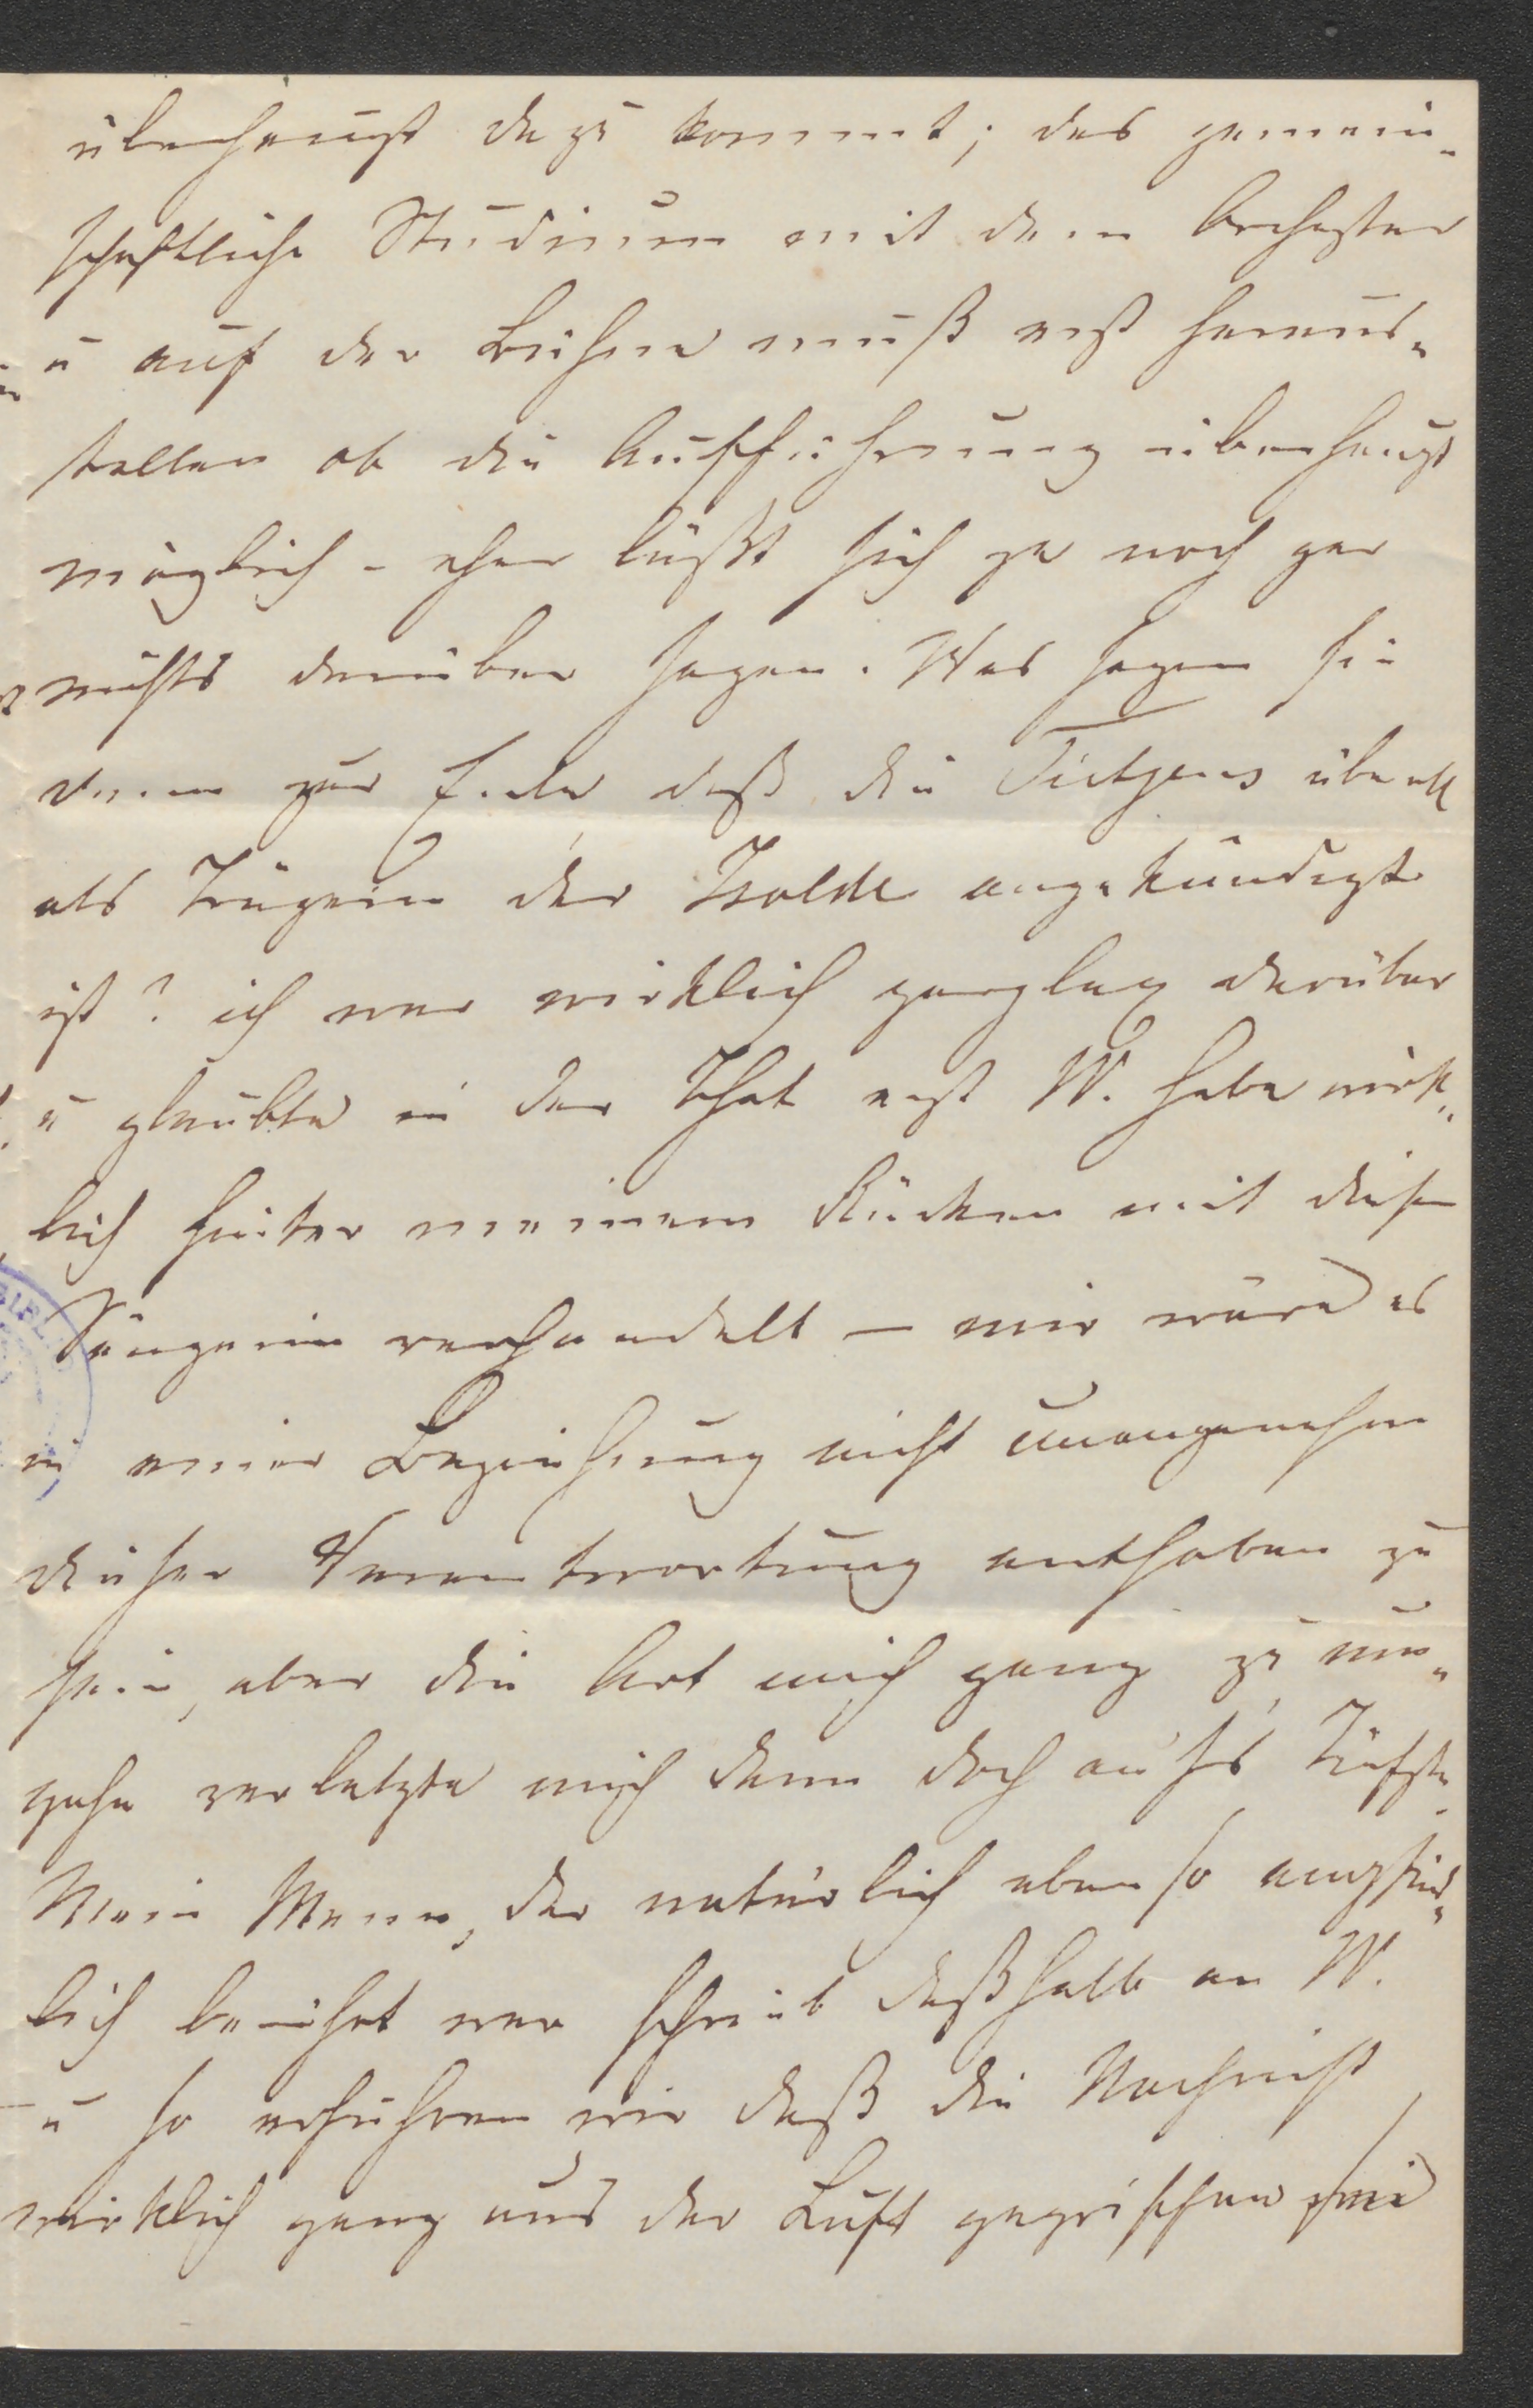 überhaupt dazu kommt; das gemein„
schaftliche Studium mit dem Orchester
u auf der Bühne muß erst heraus„
stellen ob die Aufführung überhaupt
möglich – eher läßt sich ja noch gar
nichts darüber sagen. Was sagen Sie
denn zur daß die Tietjens überall
als Trägerin der Isolde angekündigt
ist? ich war wirklich darüber
u glaubte in der That erst W. habe wirk„
lich hinter meinem Rücken mit dieser
Sängerin verhandelt – mir wäre es
in einer Beziehung nicht unangenehm
dieser Verantwortung enthoben zu
sein, aber die Art mich ganz zu um„
gehn verletzte mich denn doch aufs Tiefste.
Mein Mann, der natürlich eben so empfind„
lich berührt war schrieb deßhalb an W.
u so erfuhren wir daß die Nachricht
wirklich ganz aus der Luft gegriffen sei